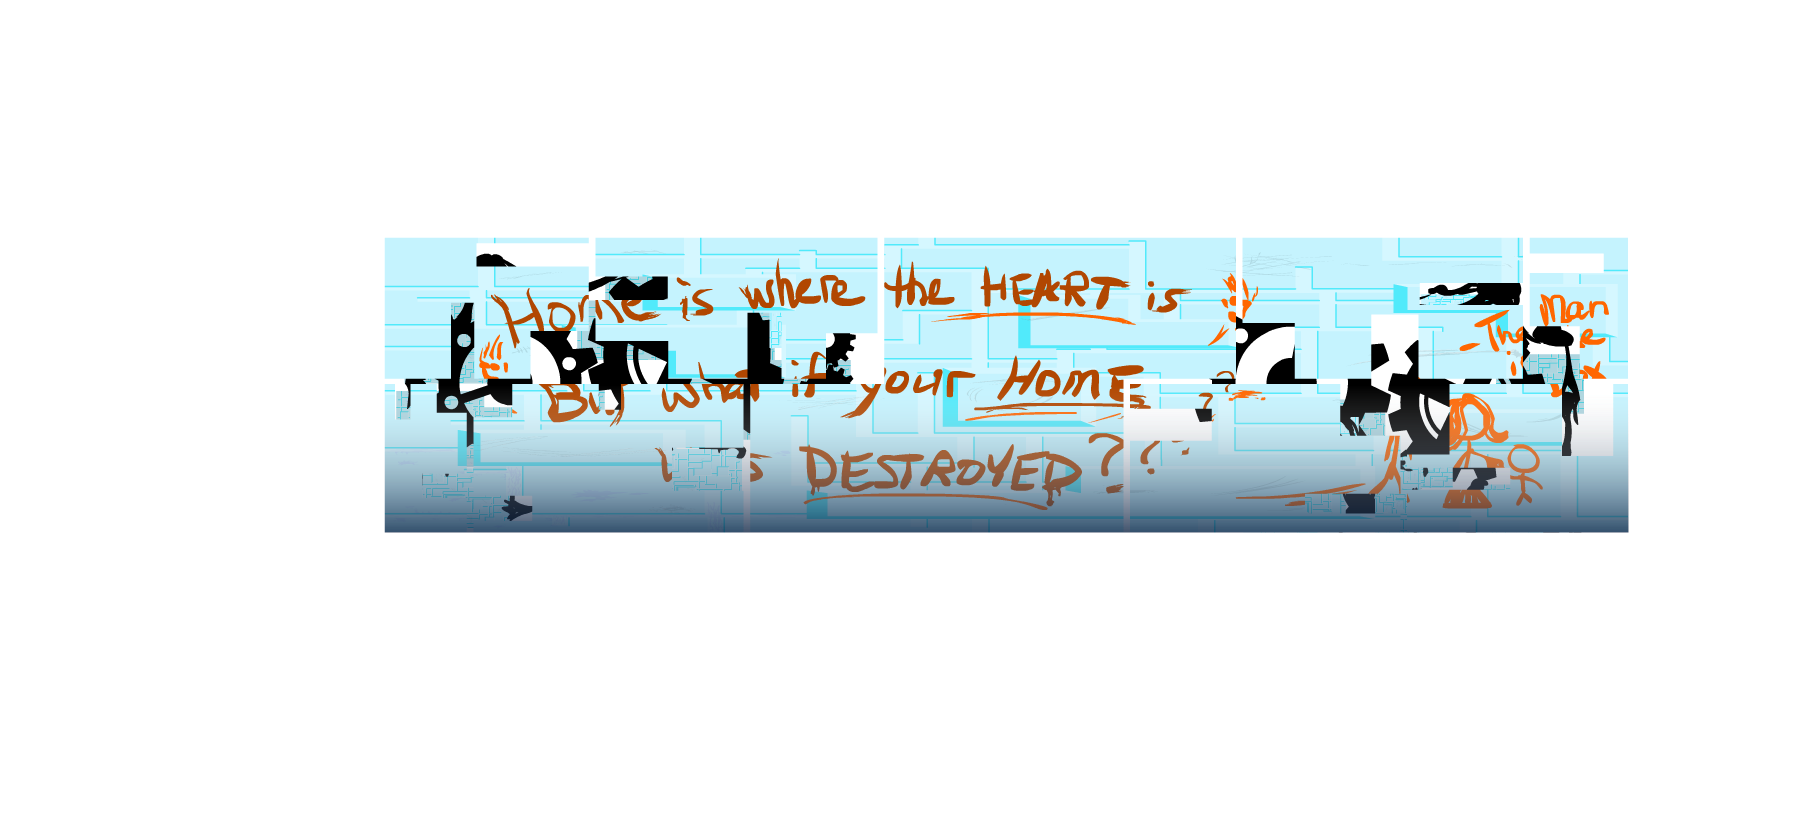 Home is where the HEART is
But what if your HOME
is DESTROYED??
- The Man